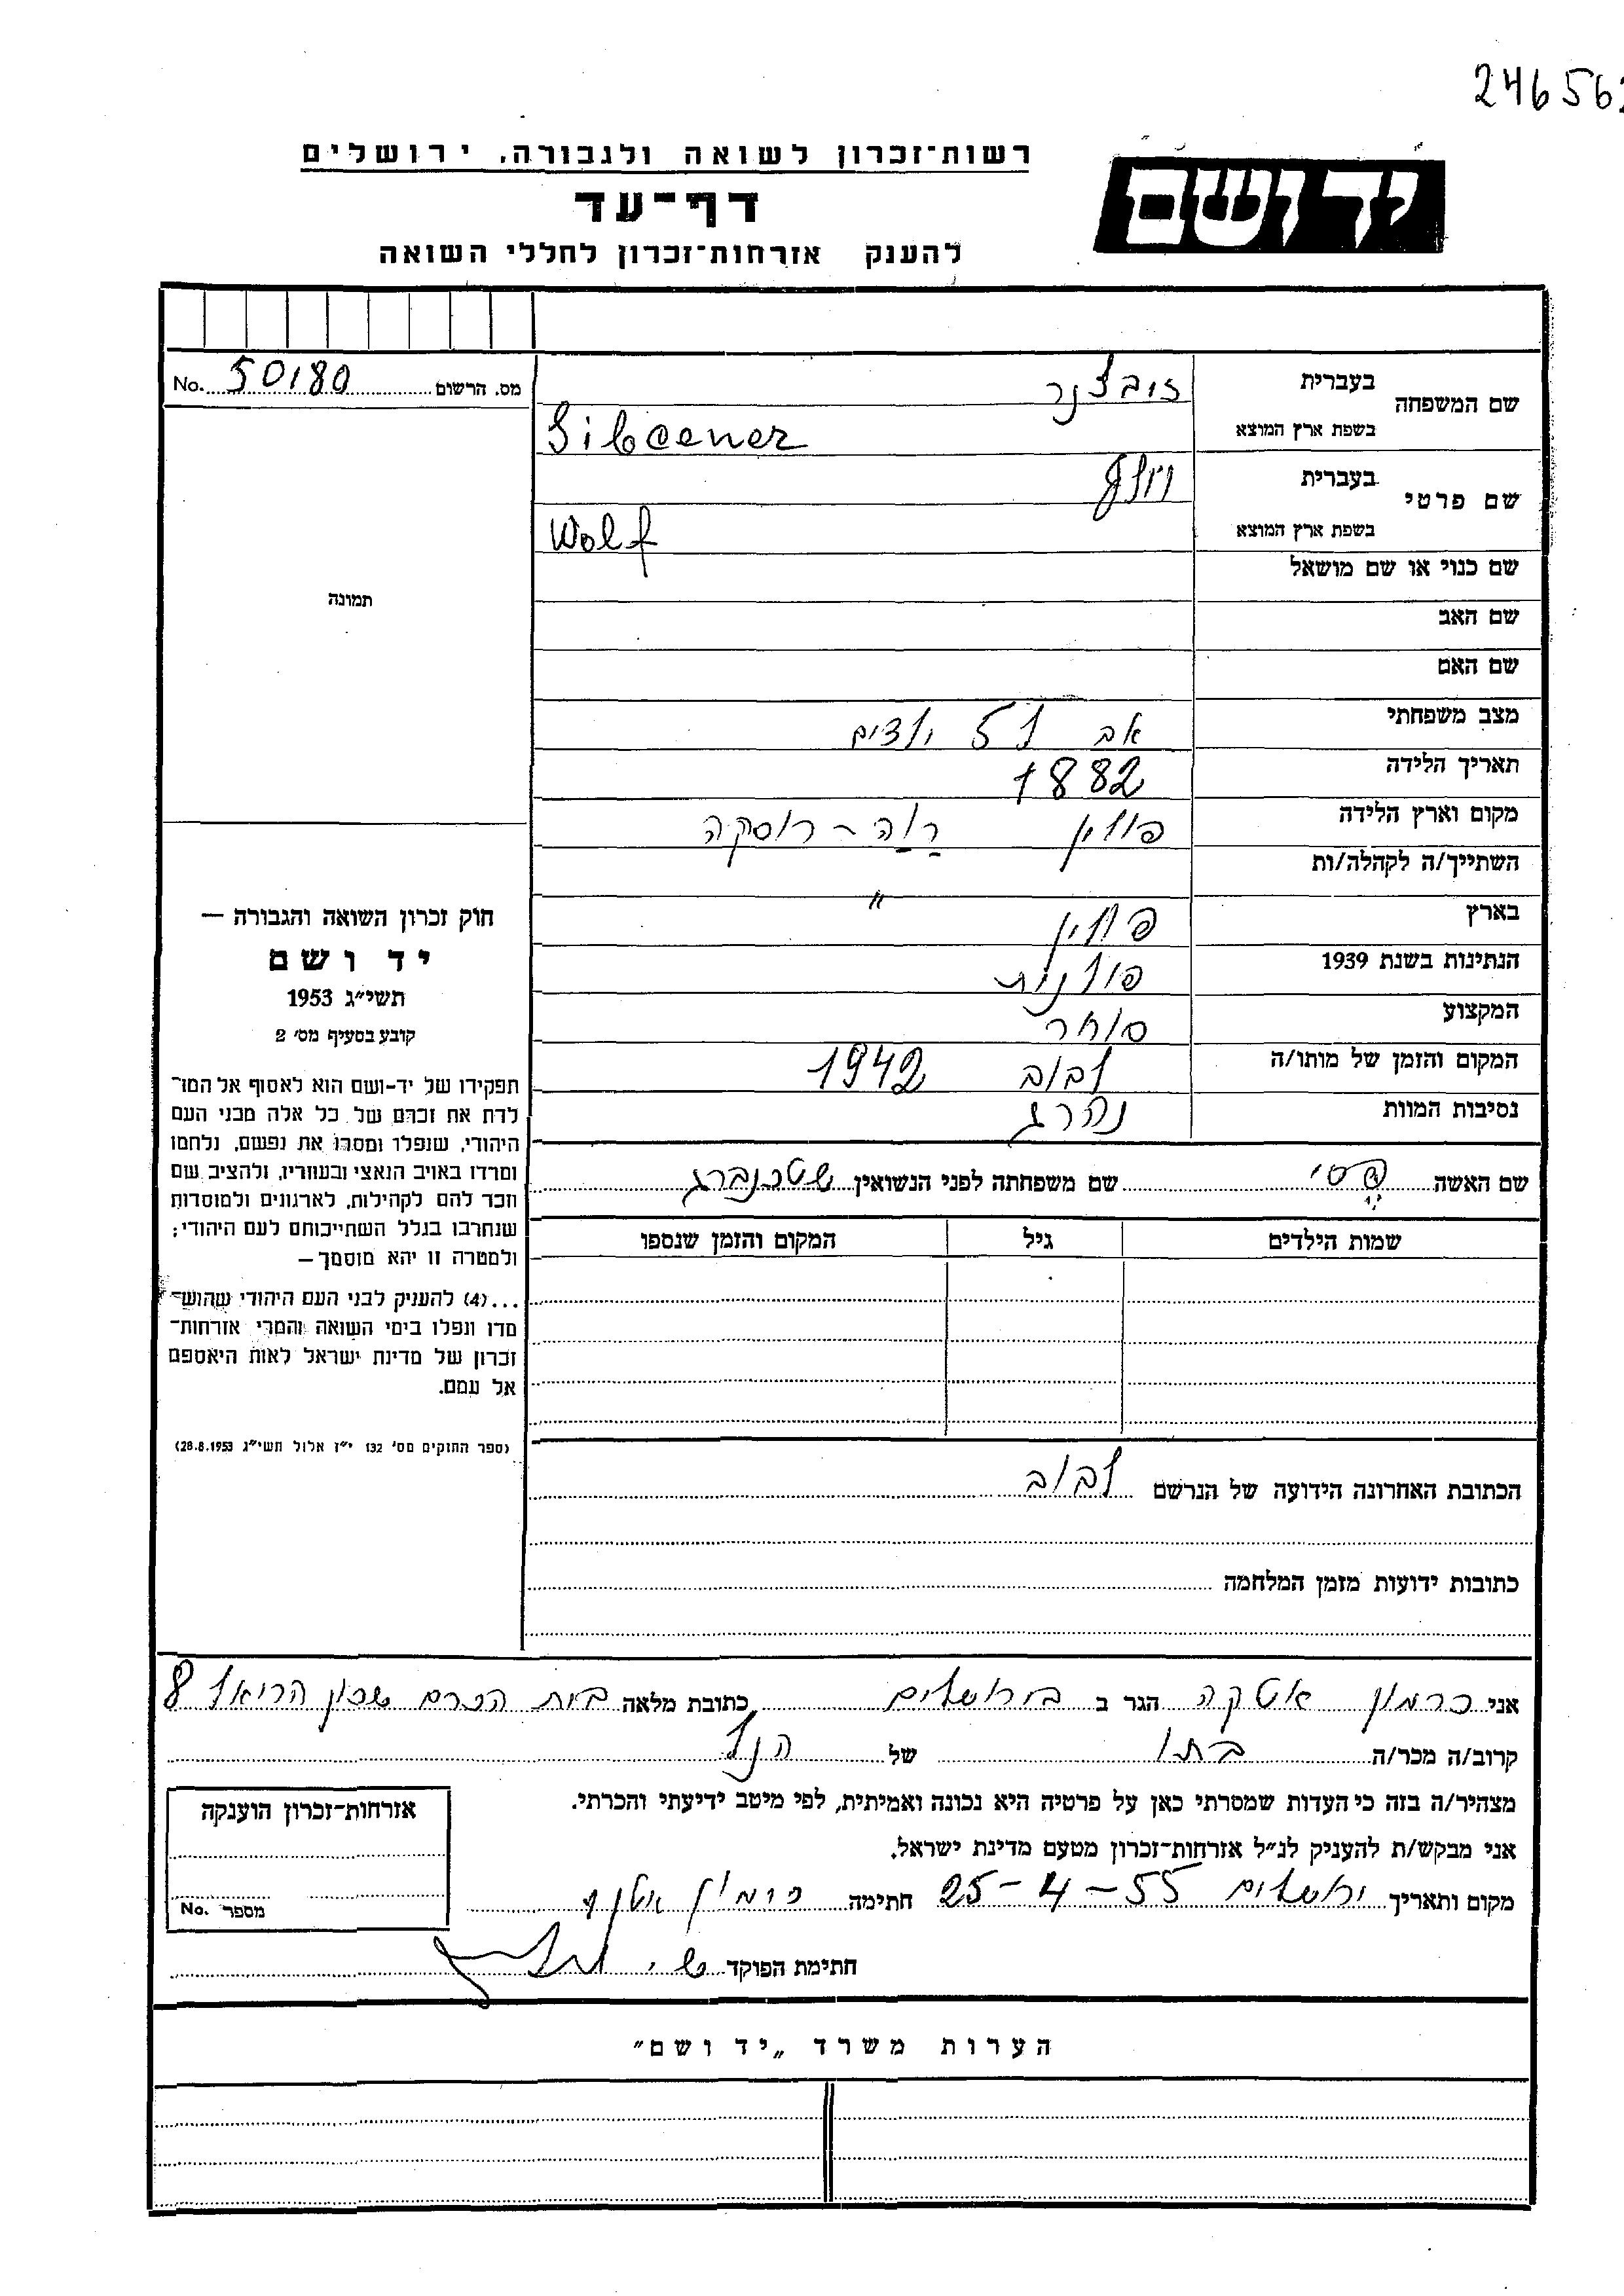 246562
רשות־זכרון לשואה ולגבורה, ירושלים
יד ושם
דף־עד
להענק אזרחות־זכרון לחללי השואה
מס. הרשום 50180 No.
שם המשפחה
בעברית
זובצנר
בשפת ארץ המוצא
Sibcener
שם פרטי
בעברית
וולף
בשפת ארץ המוצא
Wolf
שם כנוי או שם מושאל
שם האב
שם האם
מצב משפחתי אב ל 5 ילדים
תאריך הלידה 1882
מקום וארץ הלידה פולין רוה - רוסקה
השתייך/ה לקהלה/ות "
בארץ פולין
הנתינות בשנת 1939 פולנית
המקצוע סוחר
המקום והזמן של מותו/ה לבוב 1942
נסיבות המוות נהרג
שם האשה פסי שם משפחתה לפני הנשואין שטרנברג
שמות הילדים גיל המקום והזמן שנספו
הכתובת האחרונה הידועה של הנרשם לבוב
כתובות ידועות מזמן המלחמה
תמונה
חוק זכרון השואה והגבורה —
יד ושם
תשי״ג 1953
קובע בסעיף מס׳ 2
תפקידו של יד-ושם הוא לאסוף אל המו־
לדת את זכרם של כל אלה מבני העם
היהודי, שנפלו ומסרו את נפשם, נלחמו
ומרדו באויב הנאצי ובעוזריו, ולהציב שם
וזכר להם לקהילות, לארגונים ולמוסדות
שנחרבו בגלל השתייכותם לעם היהודי;
ולמטרה זו יהא מוסמך—
...(4) להעניק לבני העם היהודי שהוש־
מדו ונפלו בימי השואה והמרי אזרחות־
זכרון של מדינת ישראל לאות היאספם
אל עמם.
(ספר החוקים מס׳ 132 י״ז אלול תשי״ג 28.8.1953)
אני כרמון אטקה הגר ב בירושלים כתובת מלאה בית הכרם שכון הריאל 8
קרוב/ה מכר/ה בתו של הנ״ל
מצהיר/ה בזה כי העדות שמסרתי כאן על פרטיה היא נכונה ואמיתית, לפי מיטב ידיעתי והכרתי.
אני מבקש/ת להעניק לנ״ל אזרחות־זכרון מטעם מדינת ישראל.
מקום ותאריך ירושלים 25-4-55 חתימה כרמון אטקה
חתימת הפוקד
אזרחות־זכרון הוענקה
מספר No.
הערות משרד „יד ושם״